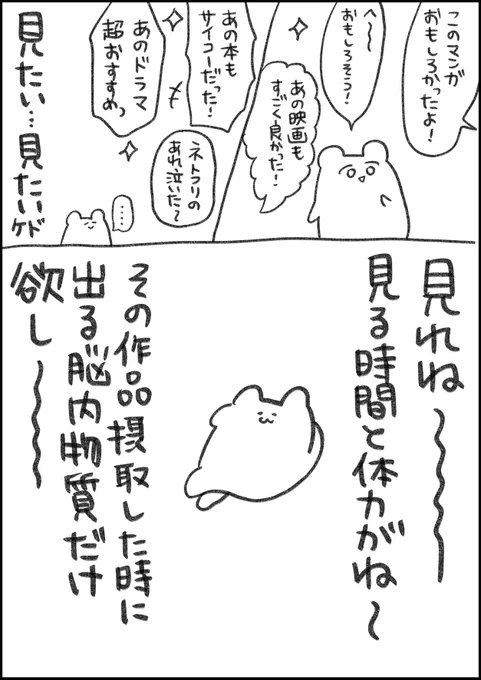 このマンガ
おもしろかったよ!
へ〜〜
おもしろそう!
あの映画も
すごく良かった!
あの本も
サイコーだった!
あのドラマ
超おすすめっ
ネトフリの
あれ泣いた〜
……
見たい…見たいケド
見れね〜〜〜〜
見る時間と体力がね〜
その作品摂取した時に
出る脳内物質だけ
欲し〜〜〜〜